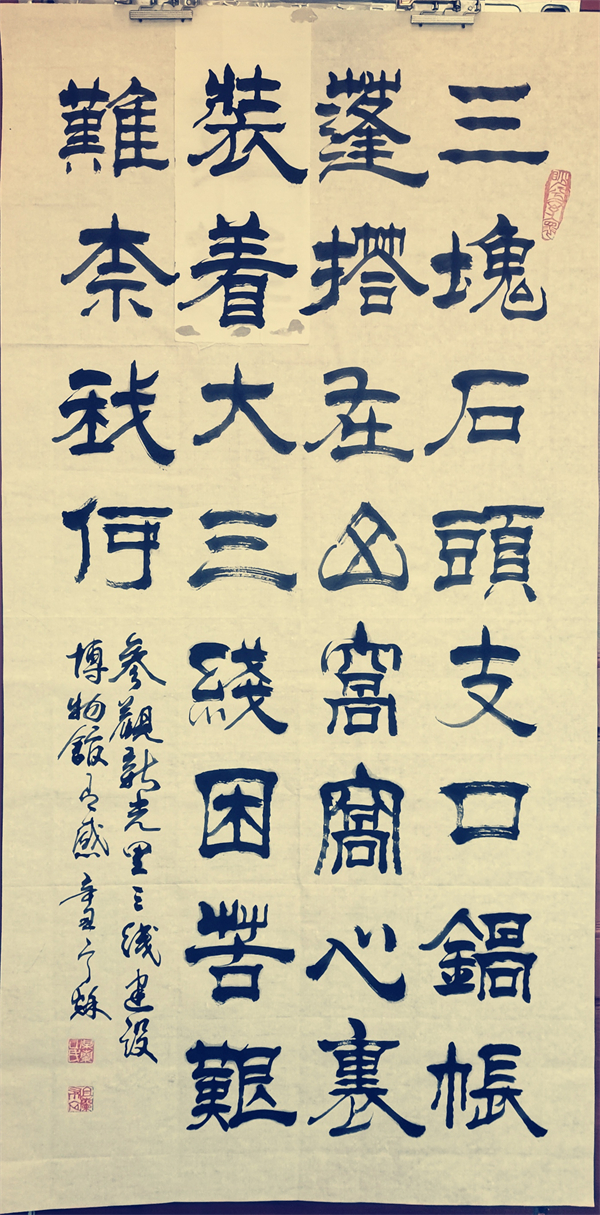 三塊石頭支口鍋帳
蓬搭在山窩窩心裏
裝着大三綫困苦艱
難奈我何
參觀新光里三綫建设
博物館有感 辛丑